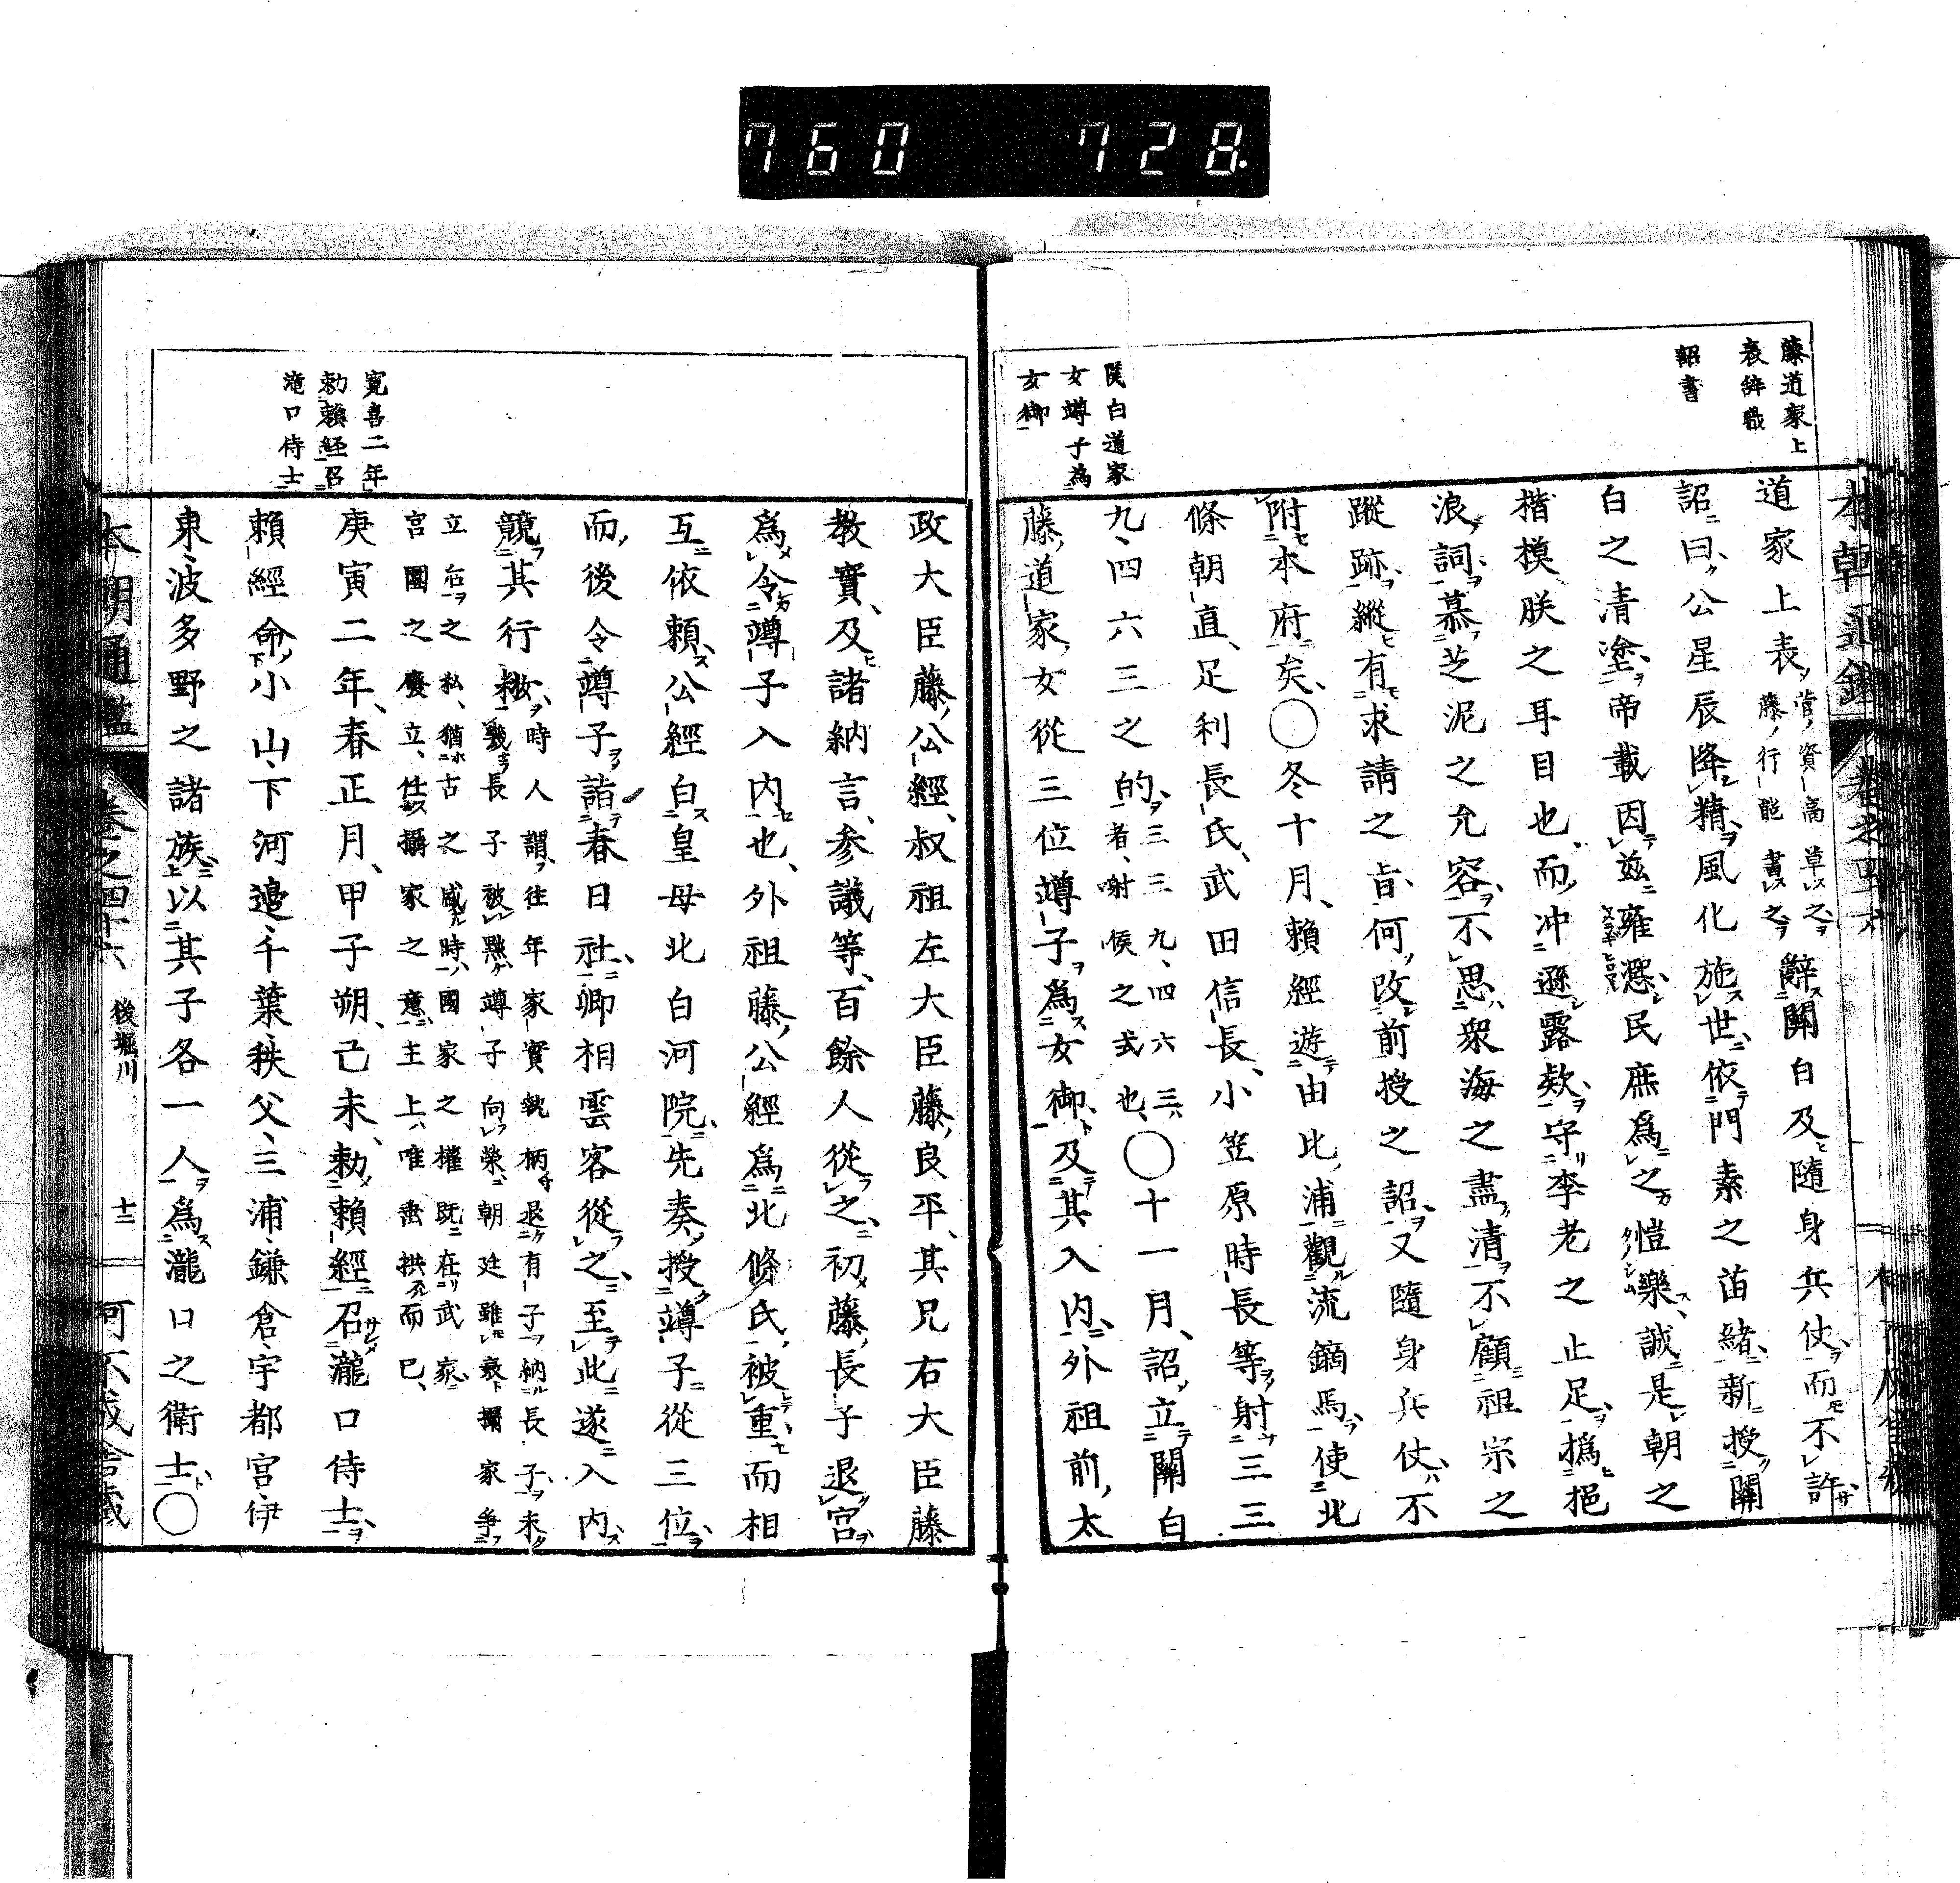 760 728
藤道家上
表辞職
詔書
関白道家
女竴子為
女御
道家上表菅資高草之藤行能書之辭關白及隨身兵仗而不許
詔曰公星辰降精風化施世依門素之苗緒新授關
白之清塗帝載因茲雍熈民庶爲之愷樂誠是朝之
楷模朕之耳目也而冲遜露欵守李老之止足撝挹
浪詞慕芝泥之允容不思衆海之盡清不顧祖宗之
蹤跡縱有求請之旨何改前授之詔又隨身兵仗不
附本府矣○冬十月賴經遊由比浦觀流鏑馬使北
條朝直足利長氏武田信長小笠原時長等射三三
九四六三之的三三九四六三者射候之式也○十一月詔立關白
藤道家女從三位竴子爲女御及其入內外祖前太
寛喜二年
勅賴経召
滝口侍士
政大臣藤公經叔祖左大臣藤良平其兄右大臣藤
教實及諸納言參議等百餘人從之初藤長子退宮
爲令竴子入內也外祖藤公經爲北條氏被重而相
互依賴公經白皇母北白河院先奏授竴子從三位
而後令竴子詣春日社卿相雲客從之至此遂入內
競其行粧時人謂往年家實執柄退有子納長子未幾長子被黜竴子向榮朝廷雖衰攝家爭
立后之私猶古之盛時國家之權既在武家宮圍之廢立仕攝家之意主上唯垂拱而已
庚寅二年春正月甲子朔己未勅賴經召瀧口侍士
賴經命小山下河邉千葉秩父三浦鎌倉宇都宮伊
東波多野之諸族以其子各一人爲瀧口之衛士○
本朝通鑑 卷之四十六 後堀川 十三